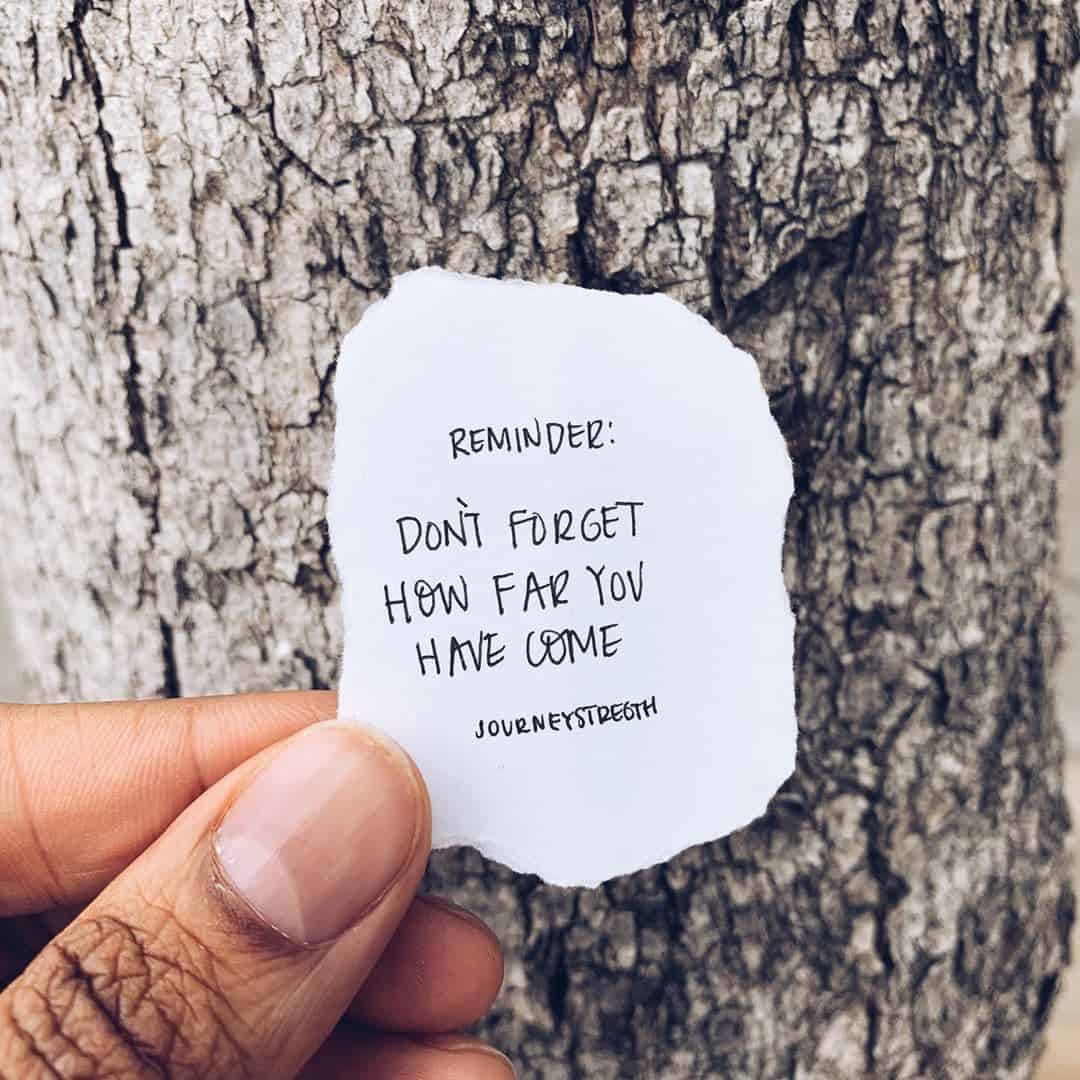 REMINDER:
DON'T FORGET
HOW FAR YOU
HAVE COME
JOURNEYSTREGTH